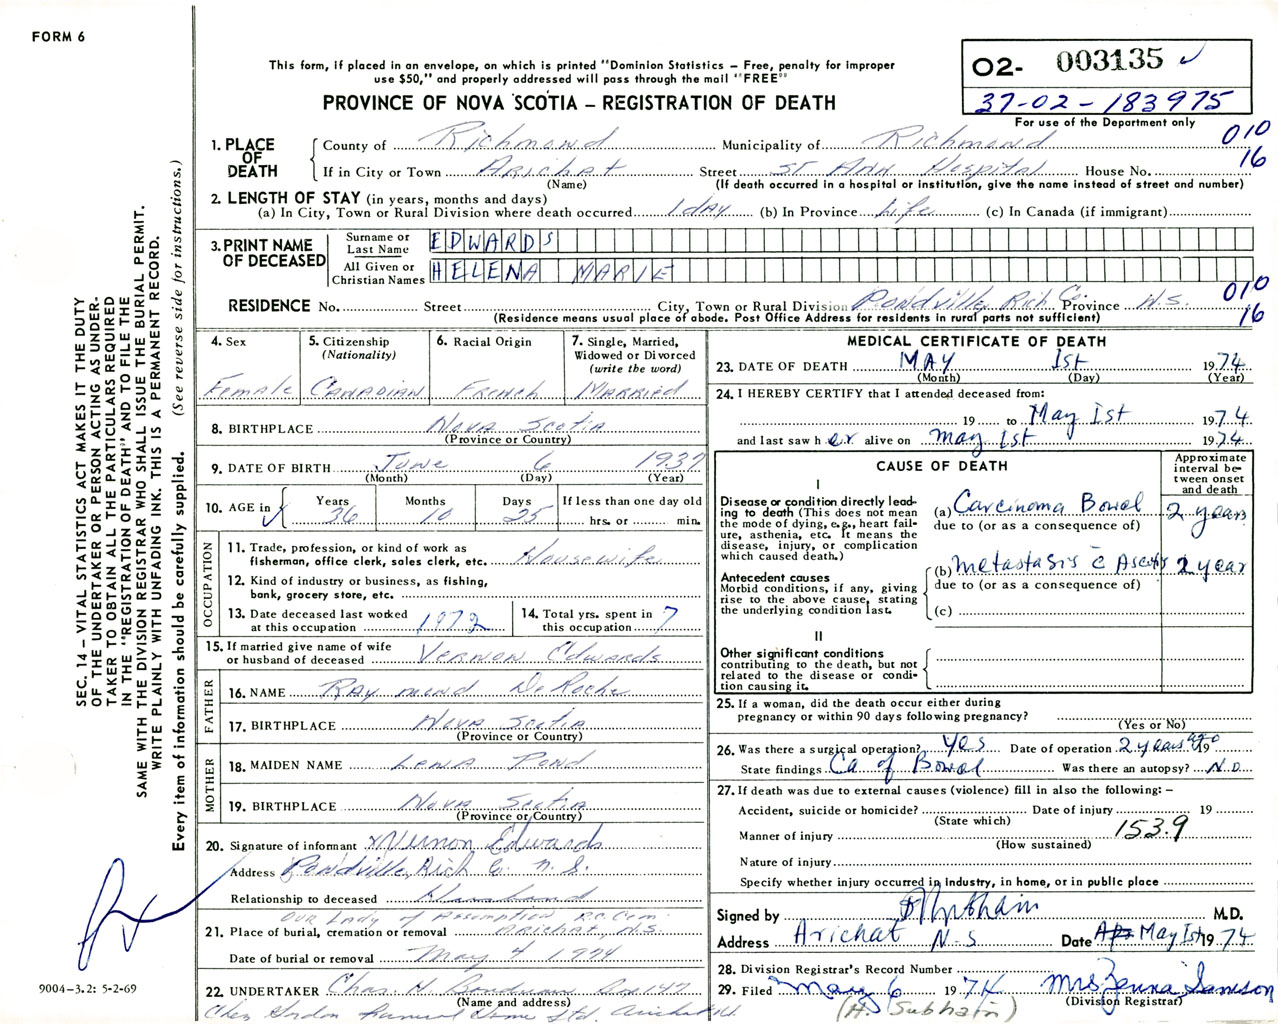 FORM 6
This form, if placed in an envelope, on which is printed "Dominion Statistics – Free, penalty for improper
use $50," and properly addressed will pass through the mail "FREE"
PROVINCE OF NOVA SCOTIA – REGISTRATION OF DEATH
02- 003135
37-02-183975
For use of the Department only
010
16
1. PLACE OF DEATH County of Richmond Municipality of Richmond
If in City or Town Arichat Street St Ann Hospital House No.
(Name) (If death occurred in a hospital or institution, give the name instead of street and number)
2. LENGTH OF STAY (in years, months and days)
(a) In City, Town or Rural Division where death occurred 1 day (b) In Province Life (c) In Canada (if immigrant)
3. PRINT NAME OF DECEASED
Surname or Last Name EDWARDS
All Given or Christian Names HELENA MARIE
RESIDENCE No. Street City, Town or Rural Division Pondville, Rich Co. Province N.S.
010
16
(Residence means usual place of abode. Post Office Address for residents in rural parts not sufficient)
4. Sex 5. Citizenship (Nationality) 6. Racial Origin 7. Single, Married, Widowed or Divorced (write the word)
Female Canadian French Married
8. BIRTHPLACE Nova Scotia
(Province or Country)
9. DATE OF BIRTH June 6 1937
(Month) (Day) (Year)
10. AGE in Years Months Days If less than one day old
36 10 25 hrs. or min.
OCCUPATION
11. Trade, profession, or kind of work as
fisherman, office clerk, sales clerk, etc. Housewife
12. Kind of industry or business, as fishing,
bank, grocery store, etc.
13. Date deceased last worked at this occupation 1972 14. Total yrs. spent in this occupation 7
15. If married give name of wife
or husband of deceased Vernon Edwards
FATHER
16. NAME Raymond DeRoche
17. BIRTHPLACE Nova Scotia
(Province or Country)
MOTHER
18. MAIDEN NAME Lena Pond
19. BIRTHPLACE Nova Scotia
(Province or Country)
20. Signature of informant x Vernon Edwards
Address Pondville, Rich Co. N.S.
Relationship to deceased Husband
Our Lady of Assumption R.C. Cem.
21. Place of burial, cremation or removal Arichat, N.S.
Date of burial or removal May 4 1974
22. UNDERTAKER Chas. H. Boudreau Box 147
(Name and address)
Funeral Home Ltd.
MEDICAL CERTIFICATE OF DEATH
23. DATE OF DEATH MAY 1st 1974
(Month) (Day) (Year)
24. I HEREBY CERTIFY that I attended deceased from:
19 to May 1st 1974
and last saw her alive on May 1st 1974
CAUSE OF DEATH
Approximate interval between onset and death
I
Disease or condition directly leading to death (This does not mean the mode of dying, e.g., heart failure, asthenia, etc. It means the disease, injury, or complication which caused death.)
(a) Carcinoma Bowel 2 years
due to (or as a consequence of)
Antecedent causes
Morbid conditions, if any, giving rise to the above cause, stating the underlying condition last.
(b) Metastasis c̄ Ascites 2 year
due to (or as a consequence of)
(c)
II
Other significant conditions
contributing to the death, but not related to the disease or condition causing it.
25. If a woman, did the death occur either during
pregnancy or within 90 days following pregnancy?
(Yes or No)
26. Was there a surgical operation? Yes Date of operation 2 years ago 19
State findings Ca of Bowel Was there an autopsy? No
27. If death was due to external causes (violence) fill in also the following: –
Accident, suicide or homicide? Date of injury 19
(State which)
Manner of injury 153.9
(How sustained)
Nature of injury
Specify whether injury occurred in Industry, in home, or in public place
Signed by M.D.
Address Arichat N-S Date May 1st 1974
28. Division Registrar's Record Number
29. Filed May 6 1974 Mrs Samson
(Division Registrar)
(H. Subhain)
SEC. 14 – VITAL STATISTICS ACT MAKES IT THE DUTY
OF THE UNDERTAKER OR PERSON ACTING AS UNDER-
TAKER TO OBTAIN ALL THE PARTICULARS REQUIRED
IN THE "REGISTRATION OF DEATH" AND TO FILE THE
SAME WITH THE DIVISION REGISTRAR WHO SHALL ISSUE THE BURIAL PERMIT.
WRITE PLAINLY WITH UNFADING INK. THIS IS A PERMANENT RECORD.
Every item of information should be carefully supplied. (See reverse side for instructions.)
9004-3.2: 5-2-69